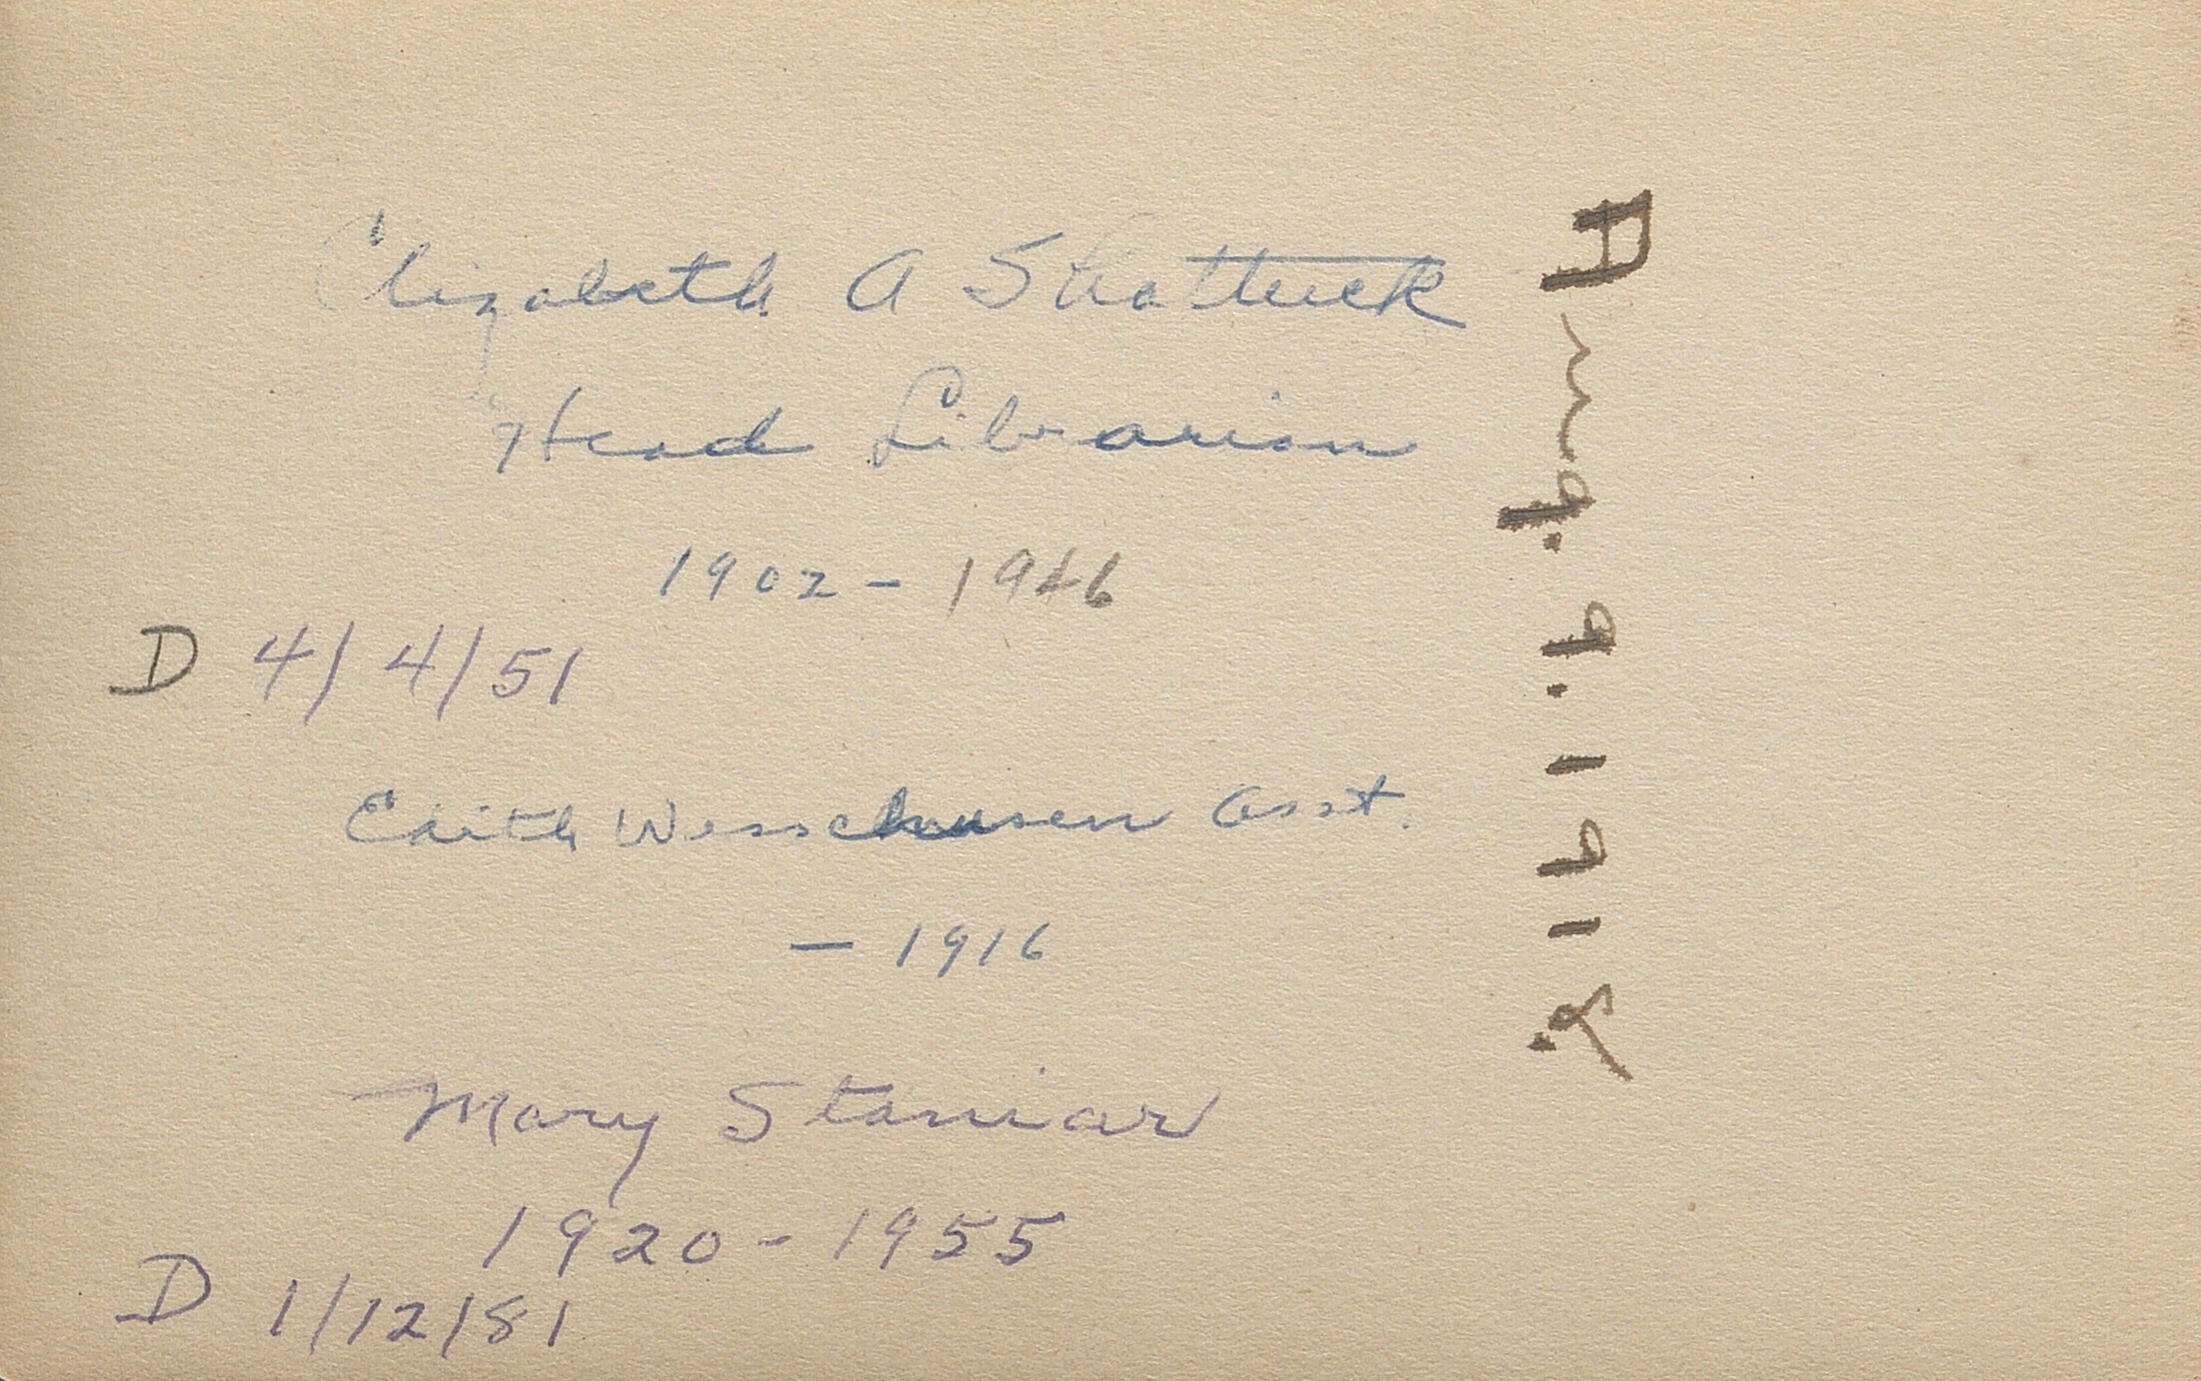 Elizabeth A Shattuck
Head Librarian
1902 - 1946
D 4/4/51
Edith Wesschusen Asst.
- 1916
Mary Staniar
1920 - 1955
D 1/12/81
1912.